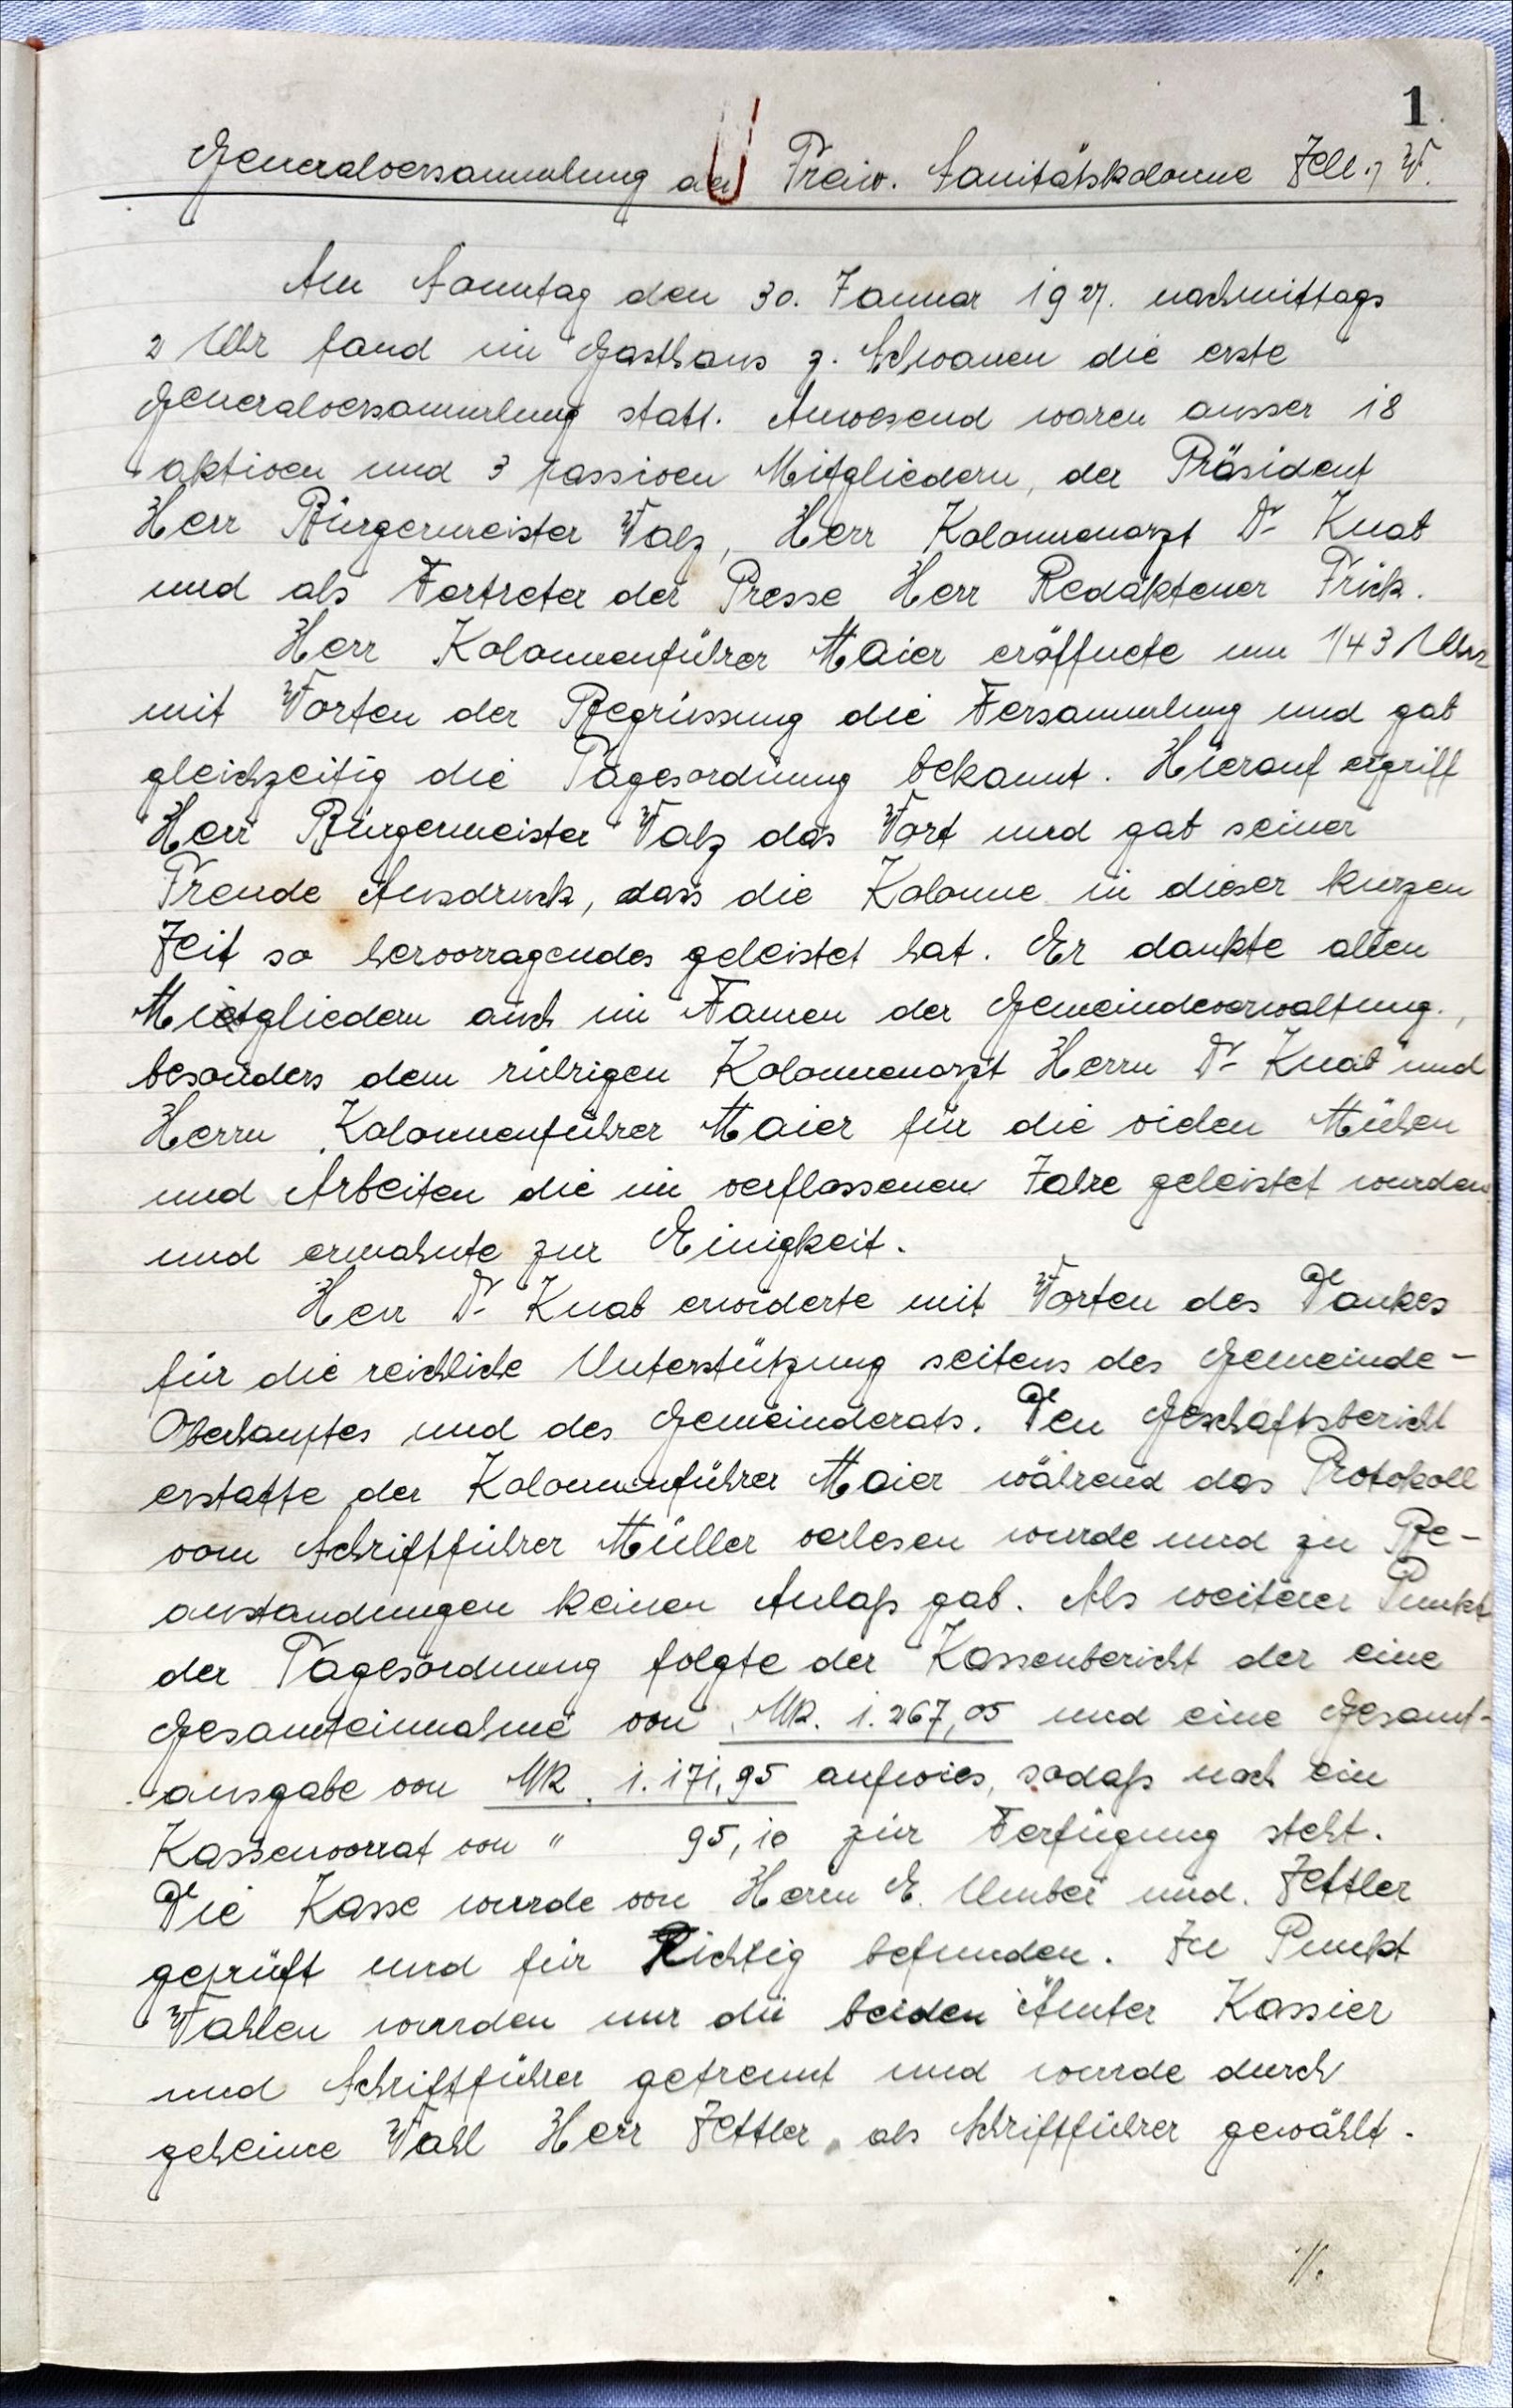 1
Generalversammlung der Freiw. Sanitätskolonne Zell. W.
Am Sonntag den 30. Januar 1927. nachmittags
2 Uhr fand im Gasthaus z. Schwanen die erste
Generalversammlung statt. Anwesend waren ausser 18
aktiven und 3 passiven Mitgliedern, der Präsident
Herr Bürgermeister Walz, Herr Kolonnenarzt Dr Knab
und als Vertreter der Presse Herr Redakteuer Frick.
Herr Kolonnenführer Maier eröffnete um 1/4 3 Uhr
mit Worten der Begrüssung die Versammlung und gab
gleichzeitig die Tagesordnung bekannt. Hierauf ergriff
Herr Bürgermeister Walz das Wort und gab seiner
Freude Ausdruck, dass die Kolonne in dieser kurzen
Zeit so hervorragendes geleistet hat. Er dankte allen
Mitgliedern auch im Namen der Gemeindeverwaltung,
besonders dem rührigen Kolonnenarzt Herrn Dr Knab und
Herrn Kolonnenführer Maier für die vielen Mühen
und Arbeiten die im verflossenen Jahre geleistet wurden
und ermahnte zur Einigkeit.
Herr Dr Knab erwiderte mit Worten des Dankes
für die reichliche Unterstützung seitens des Gemeinde-
Oberhauptes und des Gemeinderats. Den Geschäftsbericht
erstatte der Kolonnenführer Maier während das Protokoll
vom Schriftführer Müller verlesen wurde und zu Be-
anstandungen keinen Anlaß gab. Als weiterer Punkt
der Tagesordnung folgte der Kassenbericht der eine
Gesamteinnahme von Mk. 1.267,05 und eine Gesamt-
ausgabe von Mk. 1.171,95 aufwies, sodaß noch ein
Kassenvorrat von " 95,10 zur Verfügung steht.
Die Kasse wurde von Herrn E. und. Zettler
geprüft und für Richtig befunden. Zu Punkt
Wahlen wurden nur die beiden Ämter Kassier
und Schriftführer getrennt und wurde durch
geheime Wahl Herr Zettler als Schriftführer gewählt.
./.